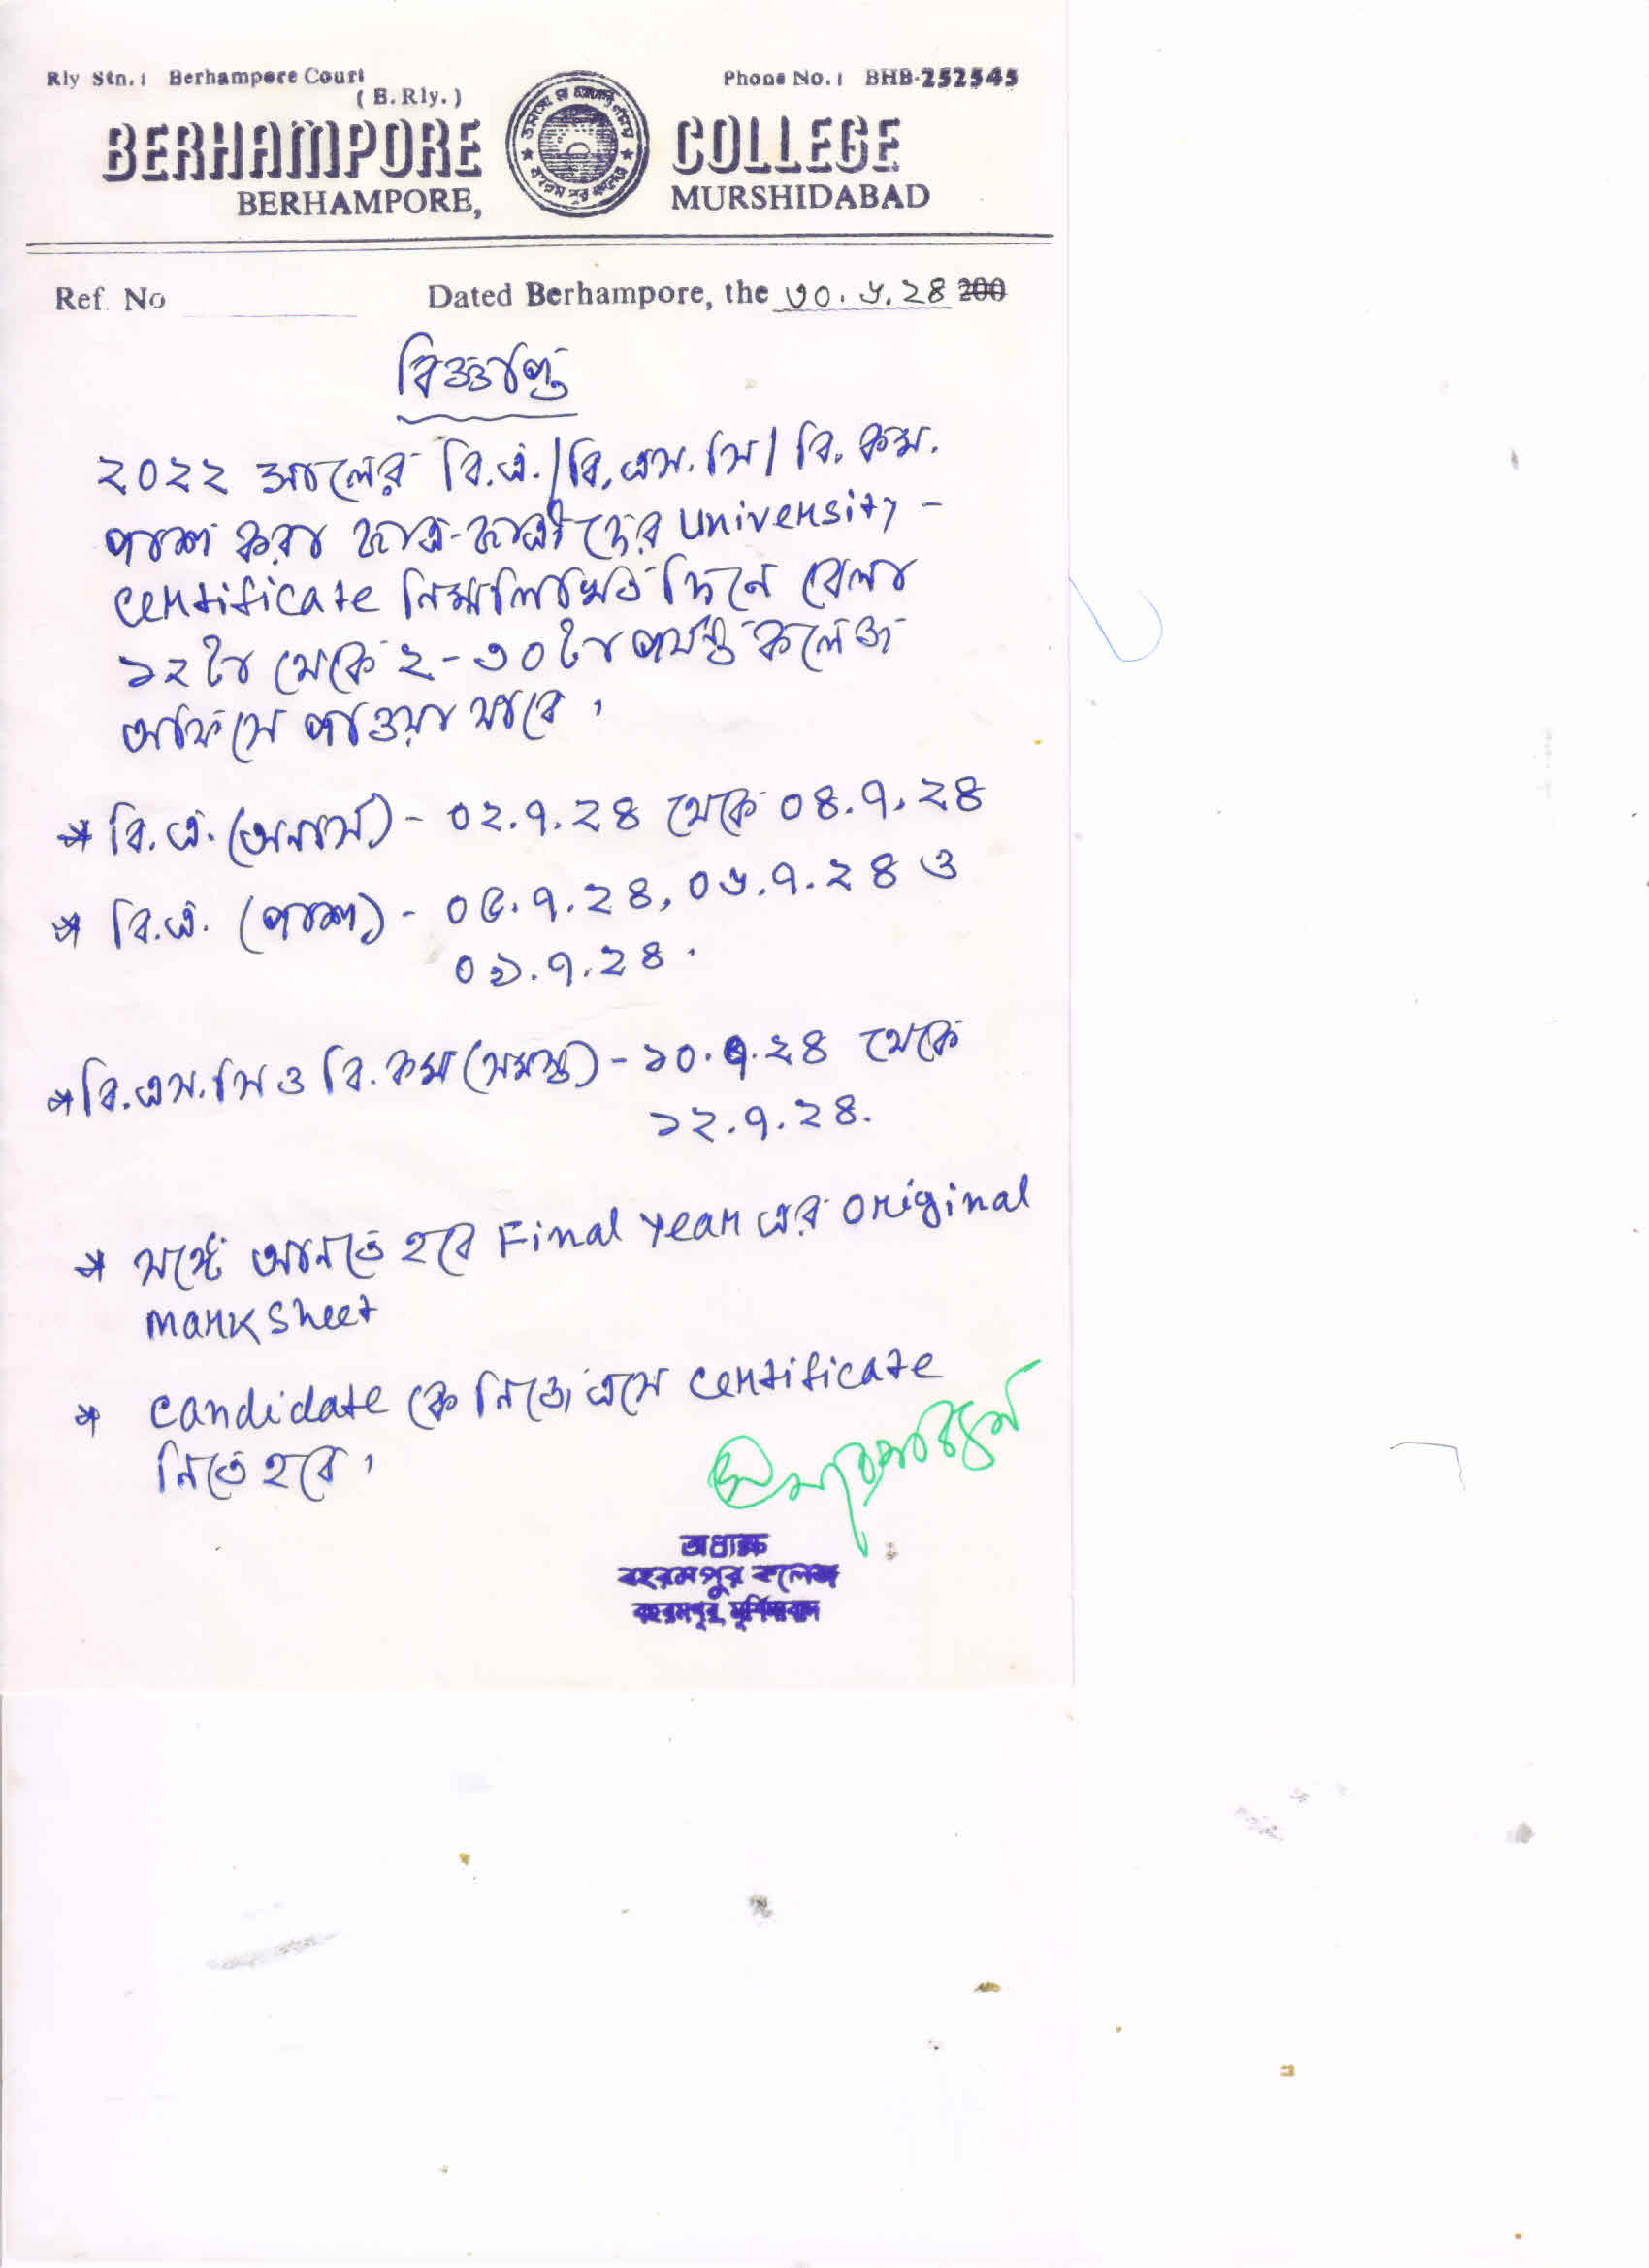 Rly Stn. : Berhampore Court
( E. Rly. )
Phone No. : BHB-252545
BERHAMPORE COLLEGE
BERHAMPORE, MURSHIDABAD
বহরমপুর কলেজ
Ref. No
Dated Berhampore, the ৩০.৬.২৪ 200
বিজ্ঞপ্তি
২০২২ সালের বি.এ./বি.এস.সি/বি.কম.
পাশ করা ছাত্র-ছাত্রীদের University -
Certificate নিম্নলিখিত দিনে বেলা
১২টা থেকে ২-৩০টা পর্যন্ত কলেজ
অফিসে পাওয়া যাবে।
* বি.এ. (অনার্স) - ০২.৭.২৪ থেকে ০৪.৭.২৪
* বি.এ. (পাশ) - ০৫.৭.২৪, ০৬.৭.২৪ ও
০৯.৭.২৪.
* বি.এস.সি ও বি.কম (সমস্ত) - ১০.৭.২৪ থেকে
১২.৭.২৪.
* সঙ্গে আনতে হবে Final Year এর Original
Mark Sheet
* Candidate কে নিজে এসে Certificate
নিতে হবে।
অধ্যক্ষ
বহরমপুর কলেজ
বহরমপুর, মুর্শিদাবাদ